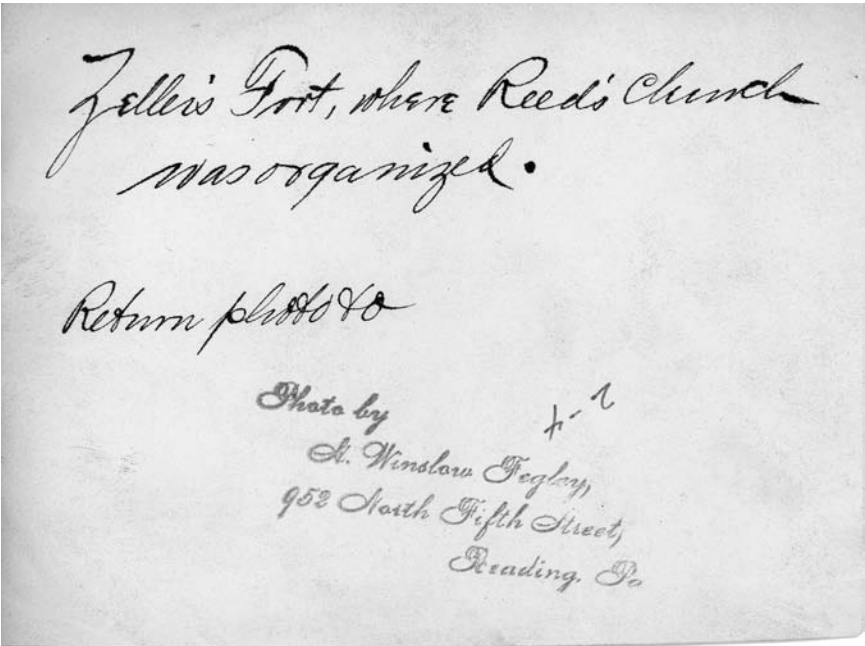 Zeller's Fort, where Reed's Church
was organized.
Return photo to
Photo by
H. Winslow Fegley,
952 North Fifth Street,
Reading. Pa